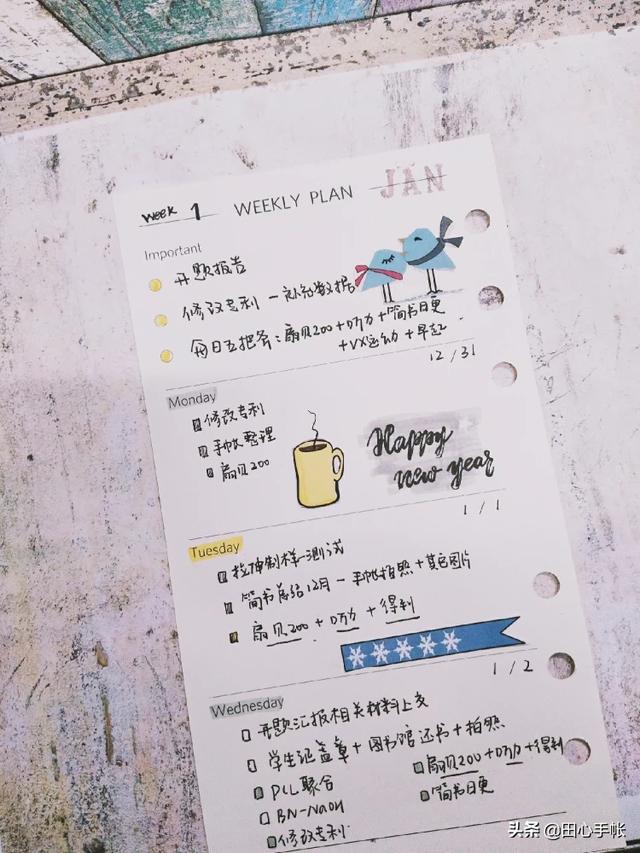 week 1 WEEKLY PLAN JAN
Important
开题报告
修改专利 — 补充数据
每日五把斧：扇贝200 + D万力 + 简书日更
+ VX运动 + 早起
12 / 31
Monday
修改专利
手帐整理
扇贝200
Happy
new year
1 / 1
Tuesday
拉伸制样—测试
简书总结12月 — 手帐拍照 + 其它图片
扇贝200 + + 得到
1 / 2
Wednesday
开题汇报相关材料上交
学生证盖章 + 图书馆还书 + 拍照
PCL聚合
BN-NaOH
修改专利
扇贝200 + + 得到
简书日更
头条 @田心手帐